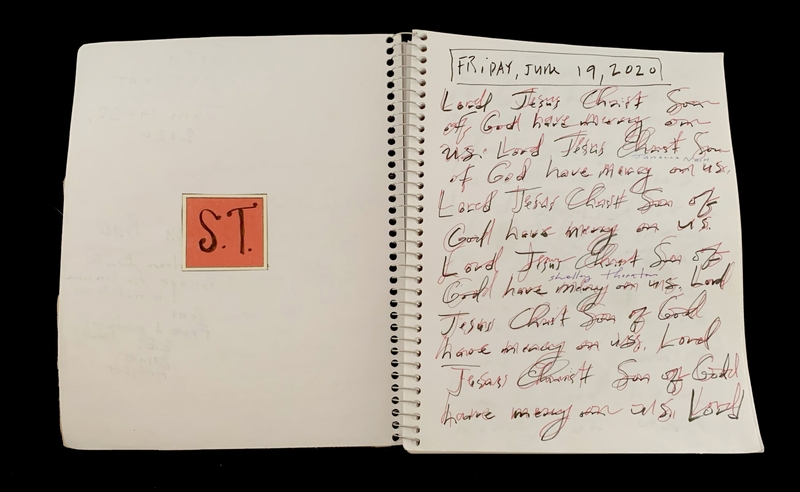 S.T.
FRIDAY, JUNE 19, 2020
Lord Jesus Christ Son
of God have mercy on
us. Lord Jesus Christ Son
of God have mercy on us.
Lord Jesus Christ Son of
God have mercy on us.
Lord Jesus Christ Son of
shelley thornton
God have mercy on us. Lord
Jesus Christ Son of God
have mercy on us. Lord
Jesus Christ Son of God
have mercy on us. Lord